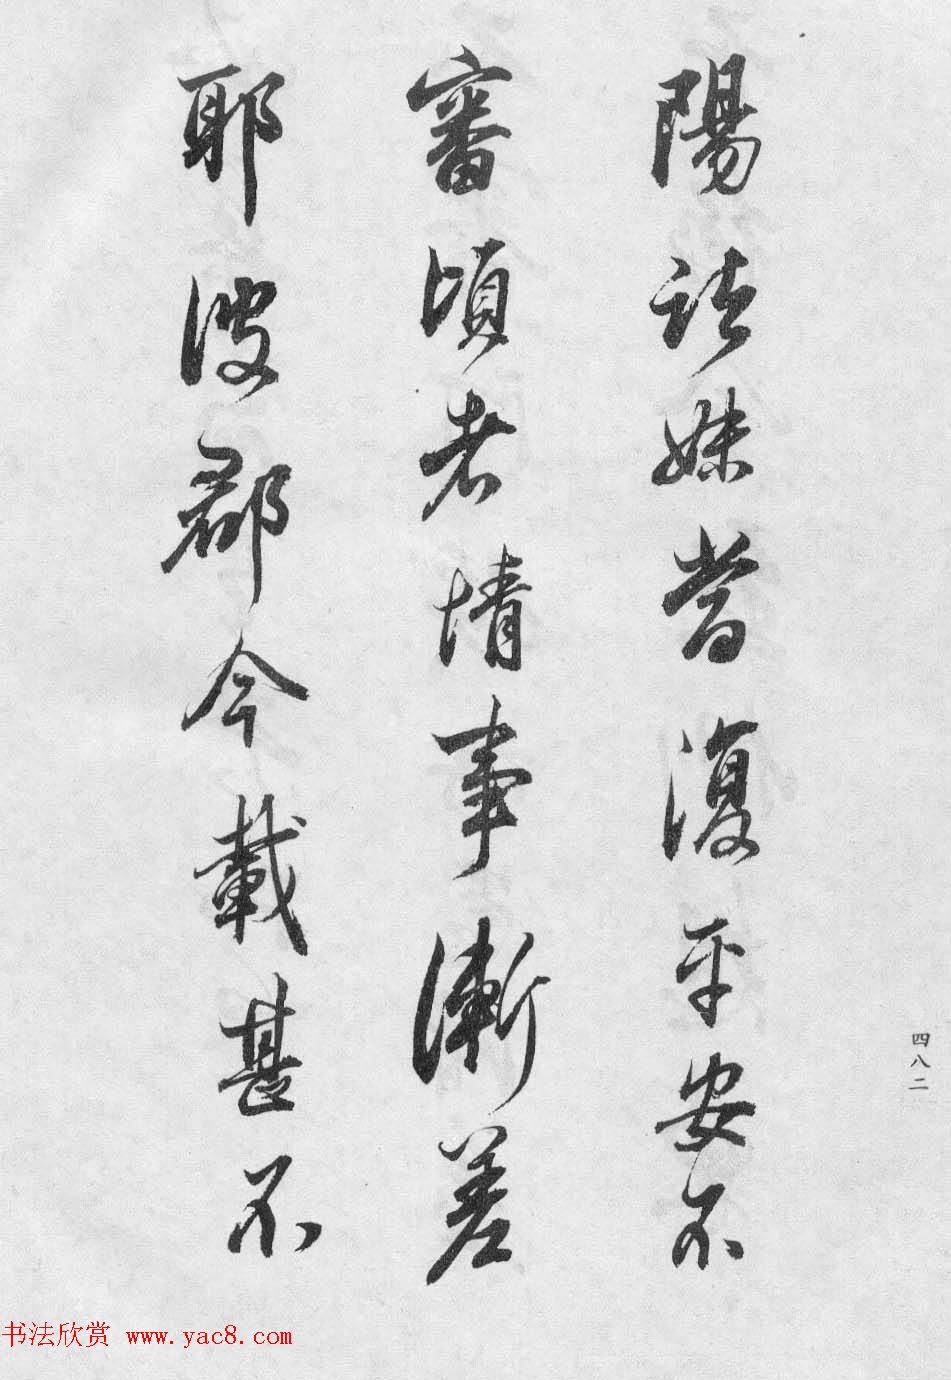 陽諸妹當復平安不
審頃者情事漸差
耶彼郡今載甚不
四八二
书法欣赏 www.yac8.com